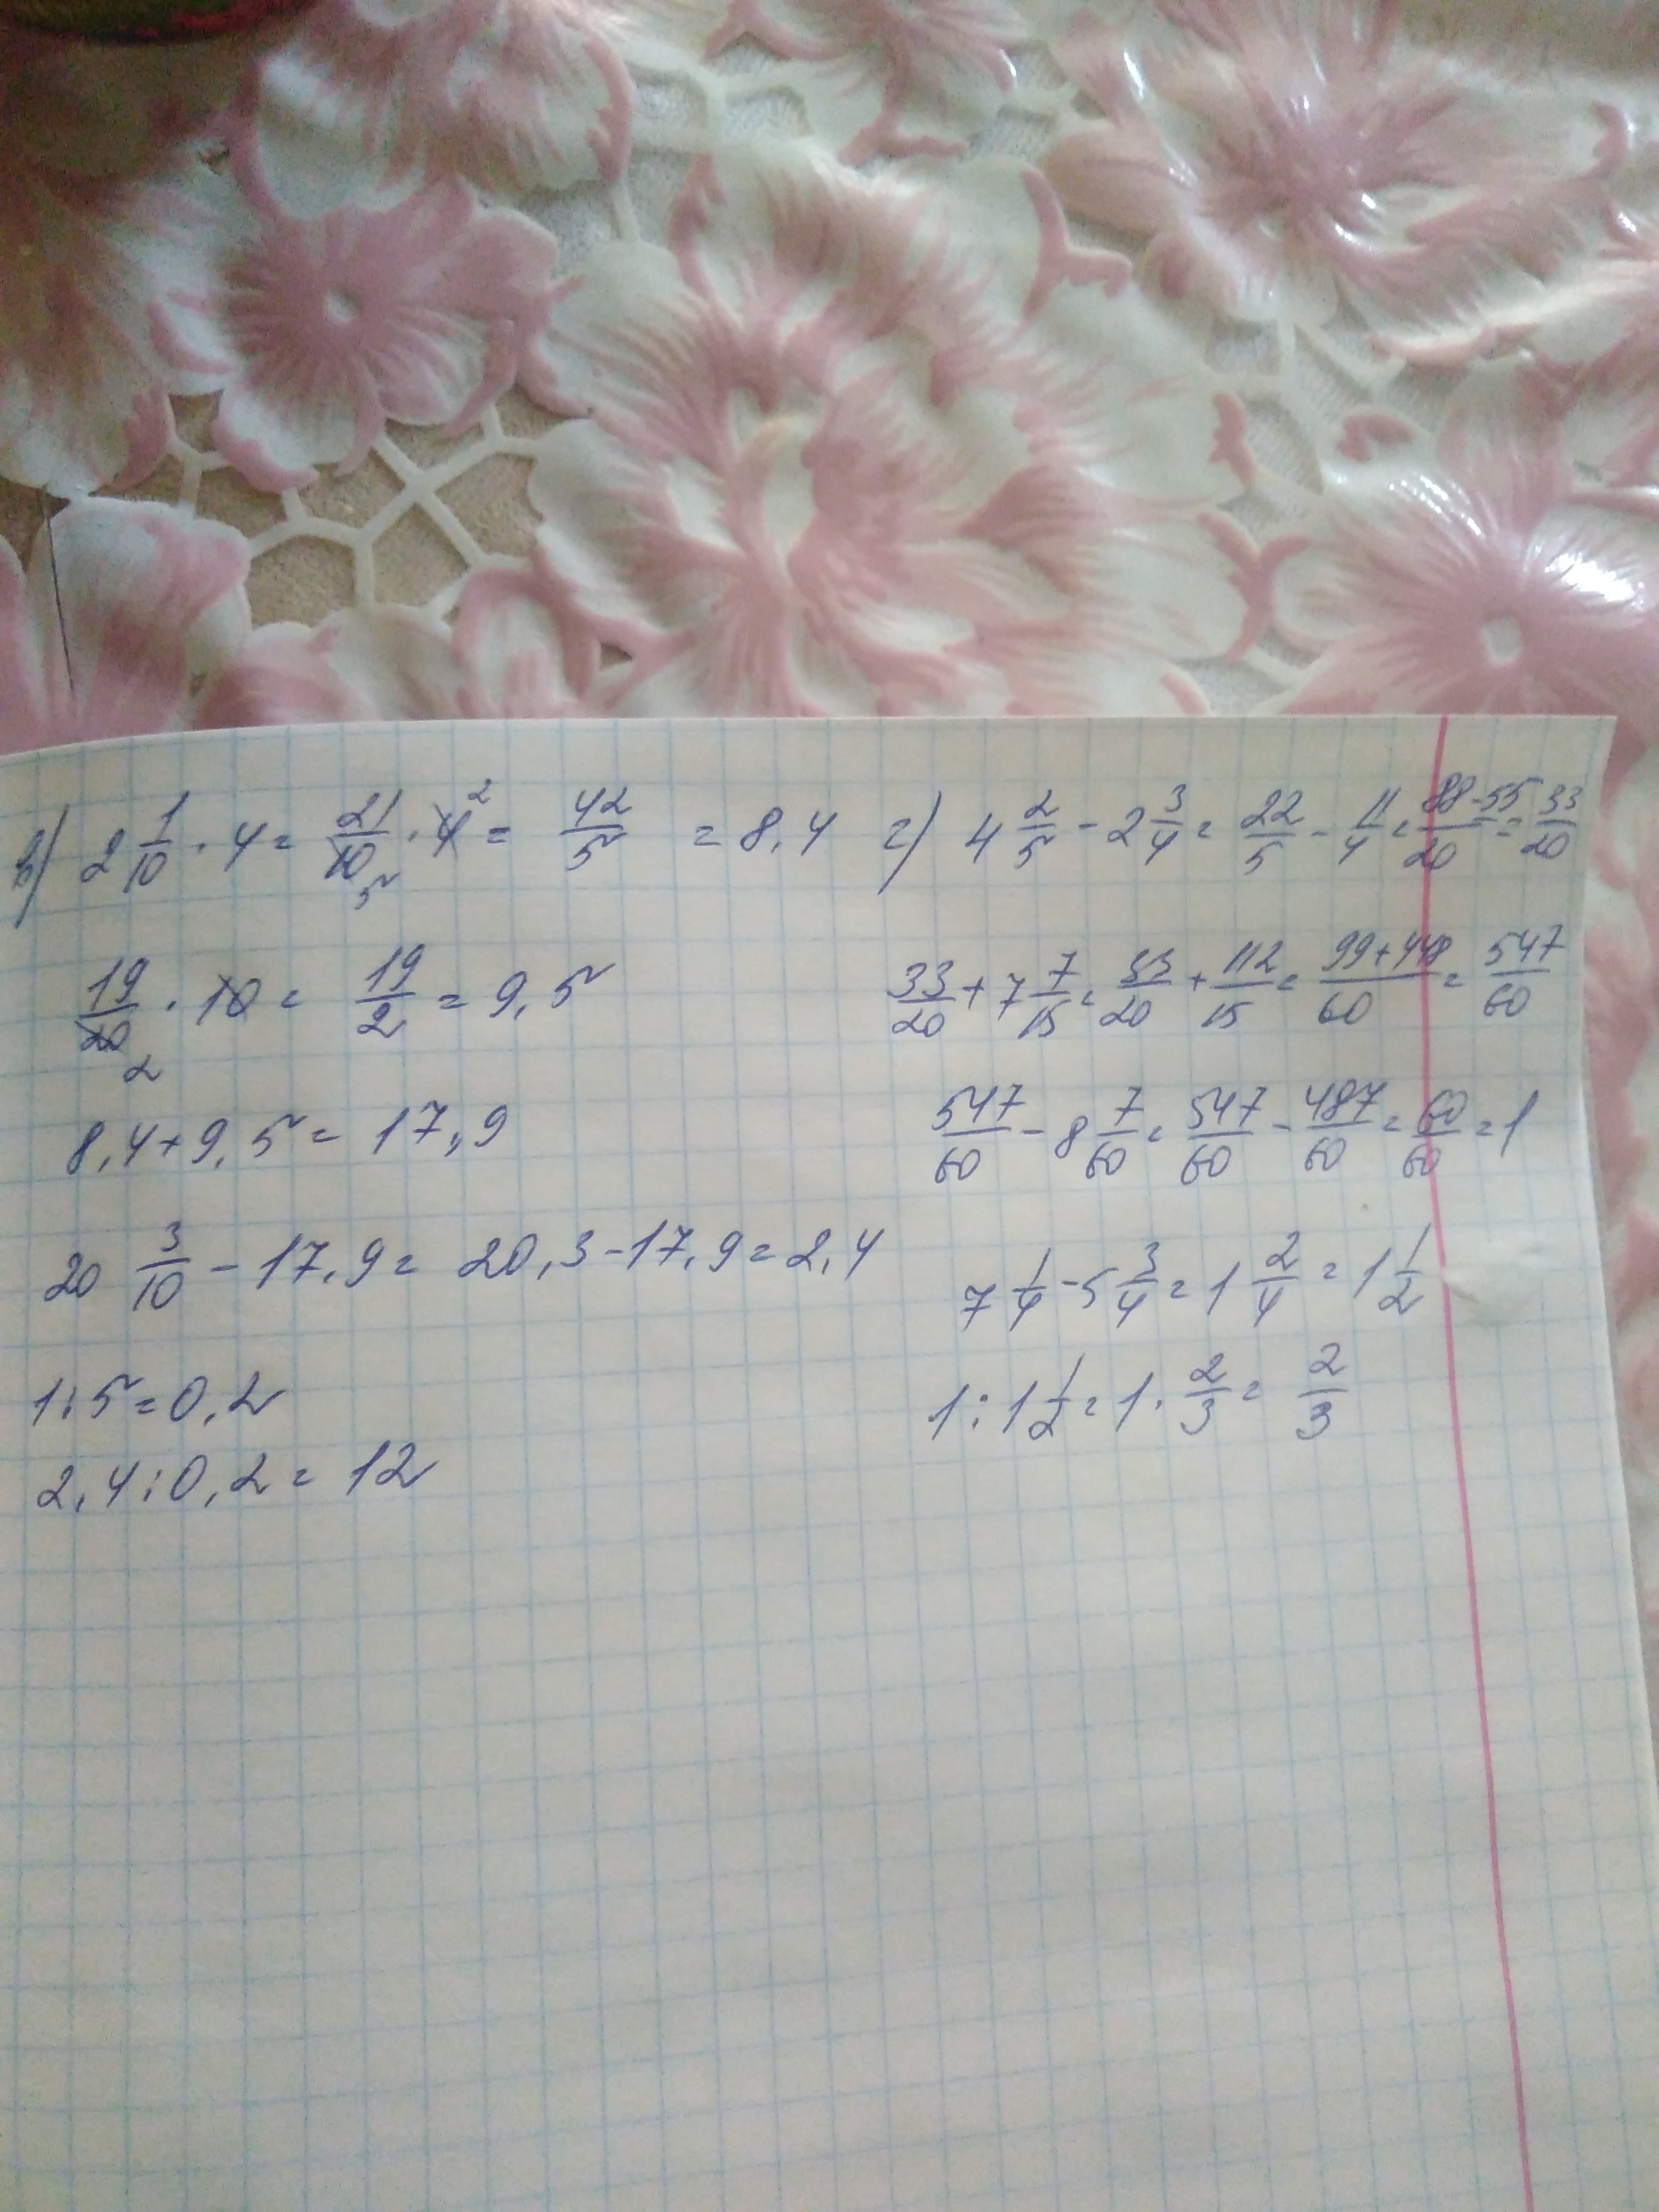 в) 2 1/10 · 4 = 21/10 5 · 4 2 = 42/5 = 8,4
19/20 2 · 10 = 19/2 = 9,5
8,4 + 9,5 = 17,9
20 3/10 - 17,9 = 20,3 - 17,9 = 2,4
1 : 5 = 0,2
2,4 : 0,2 = 12
г) 4 2/5 - 2 3/4 = 22/5 - 11/4 = 88-55/20 = 33/20
33/20 + 7 7/15 = 33/20 + 112/15 = 99+448/60 = 547/60
547/60 - 8 7/60 = 547/60 - 487/60 = 60/60 = 1
7 1/4 - 5 3/4 = 1 2/4 = 1 1/2
1 : 1 1/2 = 1 · 2/3 = 2/3